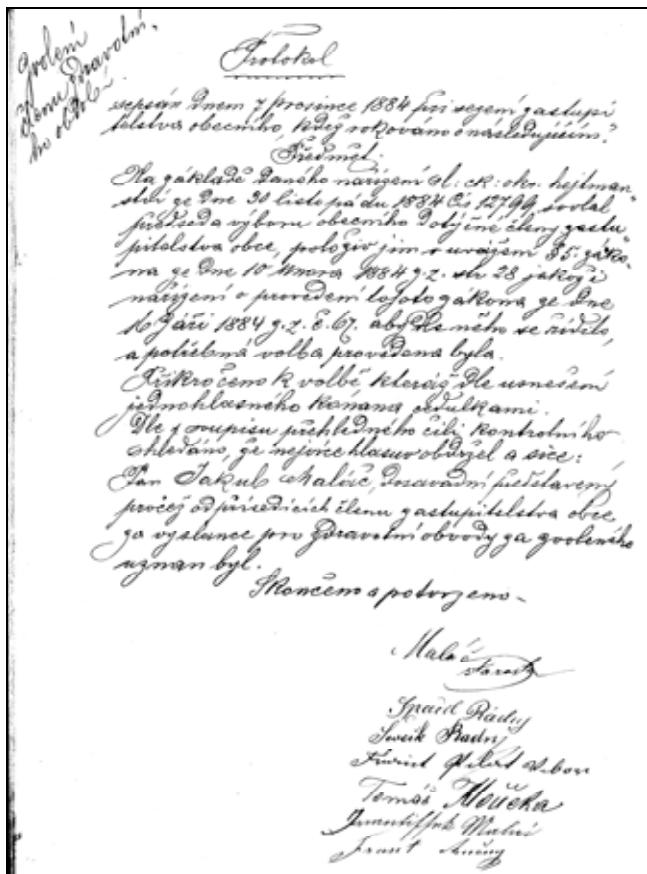 Zvolení
členu zdravotní-
ho obvodu
Protokol
sepsán dnem 7 prosince 1884 při sezení zastupi
telstva obecního, když rokováno o následujícím:
Předmět.
Na základě daného nařízení sl: ck: okr. hejtman-
ství ze dne 30 listopádu 1884 čís 12799, svolal
předseda výboru obecního dotyčné členy zastu
pitelstva obce, položiv jim v uvážení § 5. záko-
na ze dne 10 února 1884 z. z. str 28 jakož i
nařízení o provedení tohoto zákona ze dne
16 Září 1884 z. z. č. 67. aby dle něho se řídilo,
a potřebná volba provedena byla.
Přikročeno k volbě kteráž dle usnešení
jednohlasného konána cedulkami.
Dle soupisu přehledného čili kontrolního
shledáno, že nejvíce hlasuv obdržel a sice:
Pan Jakub Maláč, dosavadní představený
pročež od přísedících členu zastupitelstva obce
za vyslance pro zdravotní obvody za zvoleného
uznán byl.
Skončeno a potvrzeno-
Maláč
starosta
Radní
Radny
Tomáš
Frant